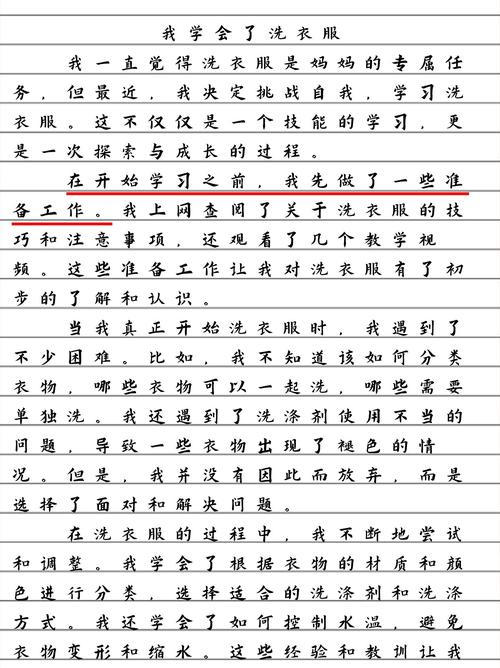 我学会了洗衣服
我一直觉得洗衣服是妈妈的专属任
务，但最近，我决定挑战自我，学习洗
衣服。这不仅仅是一个技能的学习，更
是一次探索与成长的过程。
在开始学习之前，我先做了一些准
备工作。我上网查阅了关于洗衣服的技
巧和注意事项，还观看了几个教学视
频。这些准备工作让我对洗衣服有了初
步的了解和认识。
当我真正开始洗衣服时，我遇到了
不少困难。比如，我不知道该如何分类
衣物，哪些衣物可以一起洗，哪些需要
单独洗。我还遇到了洗涤剂使用不当的
问题，导致一些衣物出现了褪色的情
况。但是，我并没有因此而放弃，而是
选择了面对和解决问题。
在洗衣服的过程中，我不断地尝试
和调整。我学会了根据衣物的材质和颜
色进行分类，选择适合的洗涤剂和洗涤
方式。我还学会了如何控制水温，避免
衣物变形和缩水。这些经验和教训让我